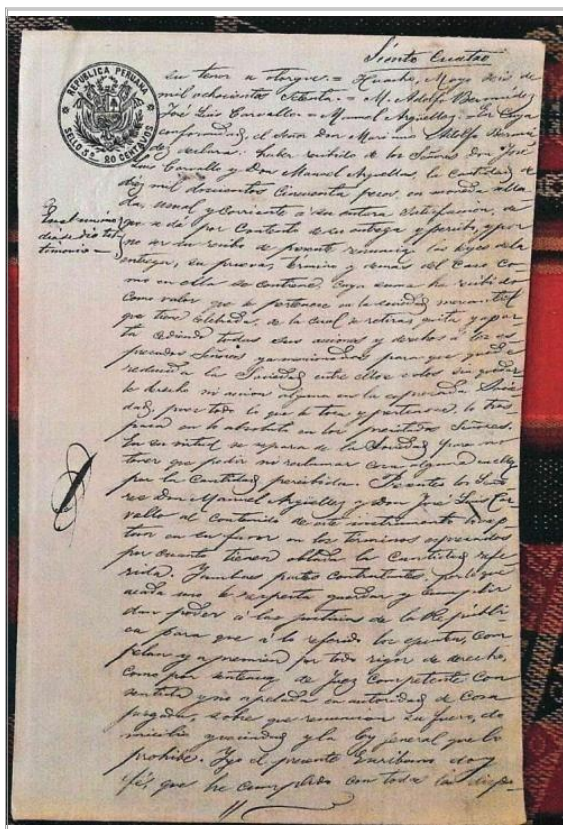 Siento Cuatro
REPUBLICA PERUANA
SELLO 5º 20 CENTAVOS
su tenor a otorgue. = Huacho, Mayo seis de
mil ochocientos setenta. = M. Adolfo Bermudez
José Luis Carvallo = Manuel Argüelles. = En Cuya
conformidad, el Señor Don Mariano Adolfo Bermu
dez declara: haber recibido de los Señores Don José
Luis Carvallo y Don Manuel Arguelles, la Cantidad de
diez mil doscientos Cincuenta pesos, en moneda
usual y corriente á su entera satisfaccion, de
que se dá por Contento de su entrega y recibo, y por
no ser su recibo de presente renuncia las leyes de la
entrega, su prueba, término y demas del Caso co-
mo en ella se contiene, Cuya suma ha recibido
como valor que le pertenece en la sociedad mercantil
que tiene celebrada, de la cual se retira, quita y apar
ta cediendo todas sus acciones y derechos á los es
presados Señores ya mencionados para que quede
reducida la Sociedad entre ellos solos sin quedar
le derecho ni accion alguna en la espresada Socie
dad, pues todo lo que le toca y pertenece, lo tras
pasa en lo absoluto en los precitados Señores.
En su virtud se separa de la Sociedad para no
tener que pedir ni reclamar cosa alguna en ella
por la Cantidad percibida. Presentes los Seño
res Don Manuel Arguelles y Don José Luis Car
vallo al Contenido de este instrumento lo acep
tan en su favor en los términos espresados
por cuanto tienen oblada la Cantidad refe
rida. Y ambas partes contratantes, por lo que
acada uno le respecta guardar y cumplir
dan poder á las justicias de la Repúbli
ca para que á lo referido los ejecuten, Com
pelan y apremien por todo rigor de derecho,
Como por sentencia de Juez Competente Con
sentida y no apelada en autoridad de Cosa
juzgada, sobre que renuncian su fuero, do
micilio y vecindad y la ley jeneral que lo
prohibe. Yo el presente Escribano doy
fé, que he cumplido con todas las dispo-